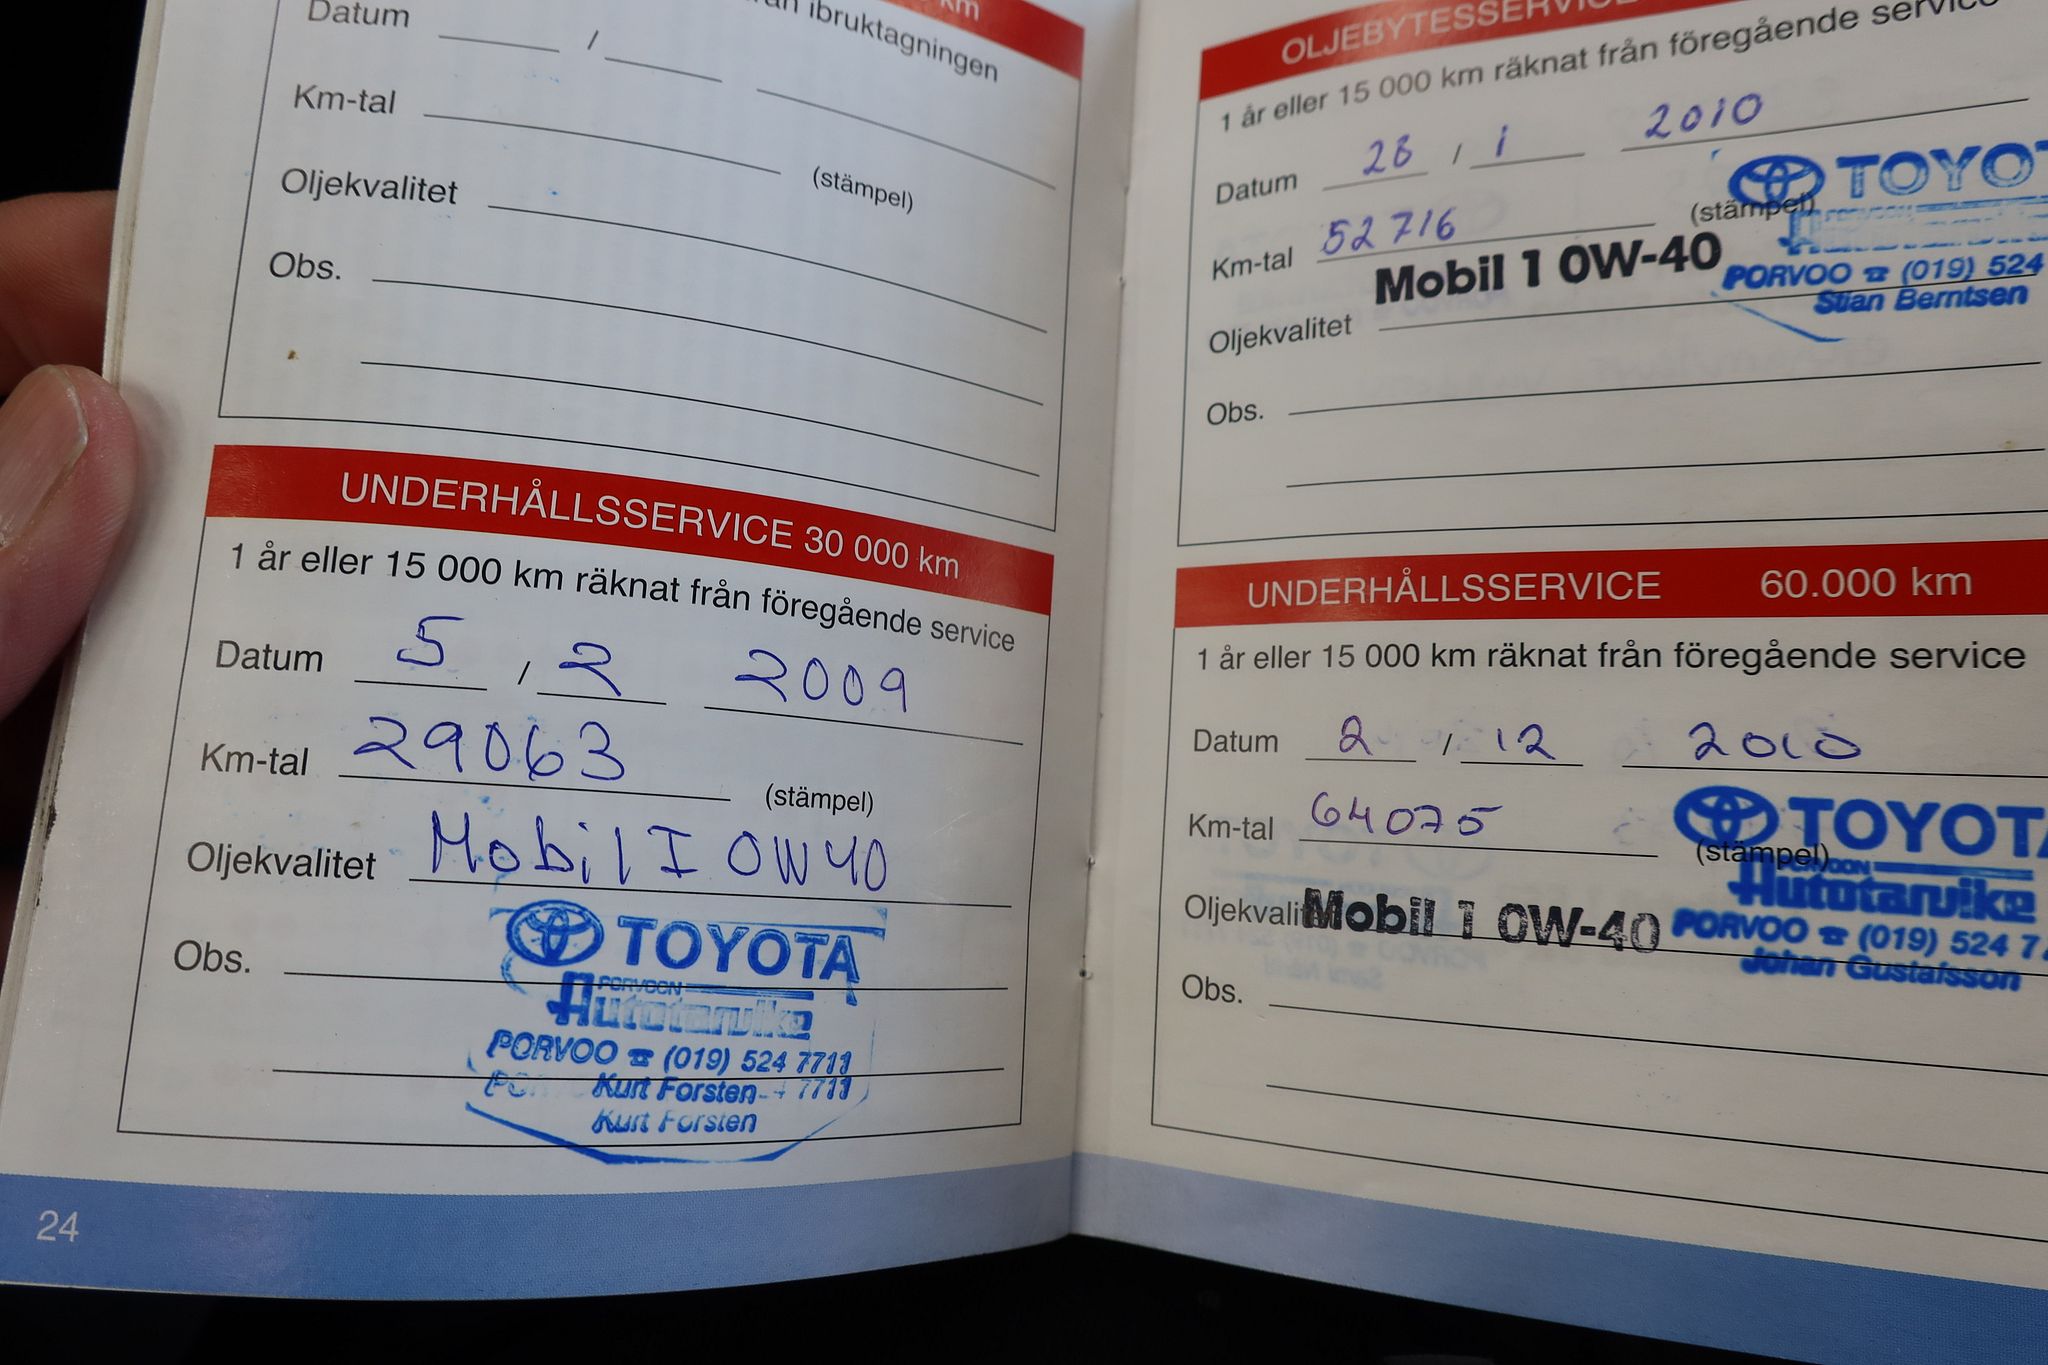 km
ibruktagningen
Datum /
Km-tal
(stämpel)
Oljekvalitet
Obs.
UNDERHÅLLSSERVICE 30 000 km
1 år eller 15 000 km räknat från föregående service
Datum 5 / 2 2009
Km-tal 29063
(stämpel)
Oljekvalitet Mobil I 0W40
Obs.
TOYOTA
PORVOON
Autotarvike
PORVOO ☎ (019) 524 7711
Kurt Forsten 7711
Kurt Forsten
24
OLJEBYTESSERVICE
1 år eller 15 000 km räknat från föregående service
Datum 28 / 1 2010
Km-tal 52716
(stämpel)
Mobil 1 0W-40
Oljekvalitet
TOYO
Autotarvike
PORVOO ☎ (019) 524
Stian Berntsen
Obs.
UNDERHÅLLSSERVICE 60.000 km
1 år eller 15 000 km räknat från föregående service
Datum 2 / 12 2010
Km-tal 64075
(stämpel)
Oljekvalit Mobil 1 0W-40
TOYOTA
Autotarvike
PORVOO ☎ (019) 524 7
Johan Gustafsson
Obs.